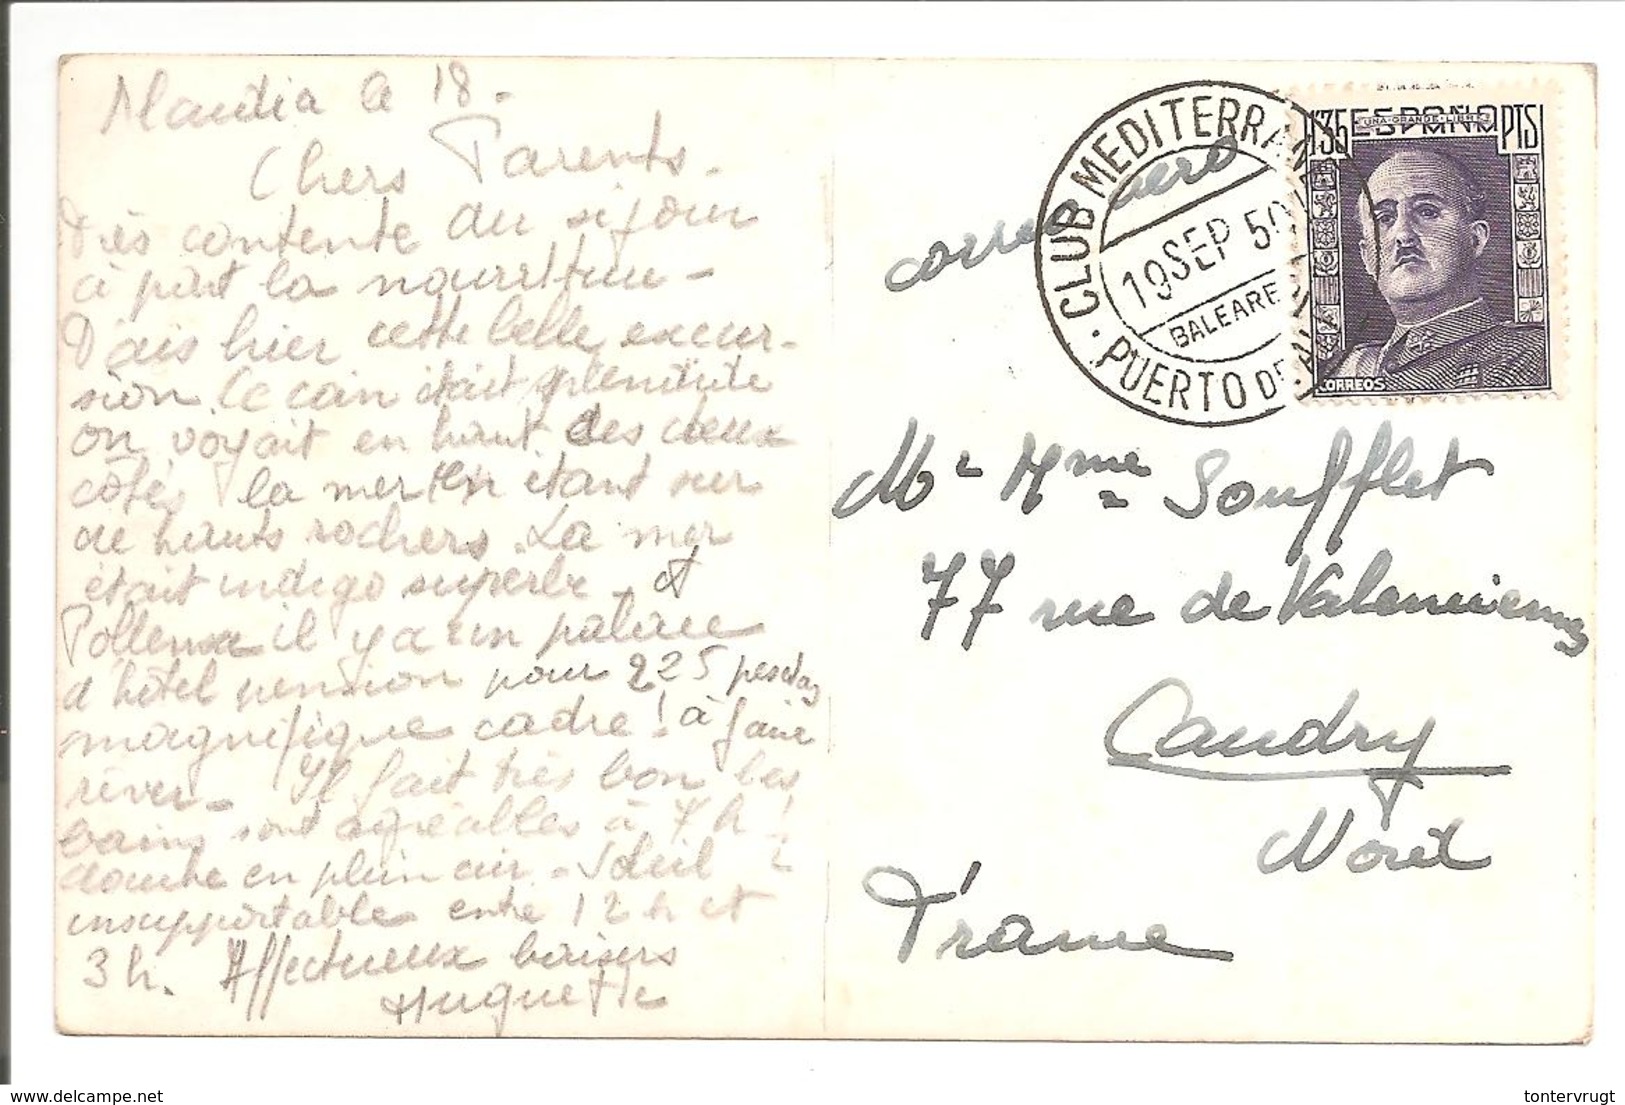 Alcudia le 18.
Chers Parents.
Très contente du séjour
à part la nourriture -
J'ais hier cette belle excur-
sion. Ce coin était splendide
on voyait en haut des deux
côtés la mer en étant sur
de hauts rochers. La mer
était indigo superbe. et
Pollensa il y a un palace
d'hôtel pension pour 225 pesetas
magnifique cadre! à faire
rêver. Il fait très bon les
bains sont agréables à 7 h!
douche en plein air. Soleil
insupportable entre 12 h et
3 h. Affectueux baisers
Huguette
correo aereo
CLUB MEDITERRANE
19 SEP 50
BALEARE
PUERTO DE AL
1'35 ESPAÑA PTS
UNA·GRANDE·LIBRE
CORREOS
Mr Mme Soufflet
77 rue de Valenciennes
Caudry
Nord
France
tontervrugt